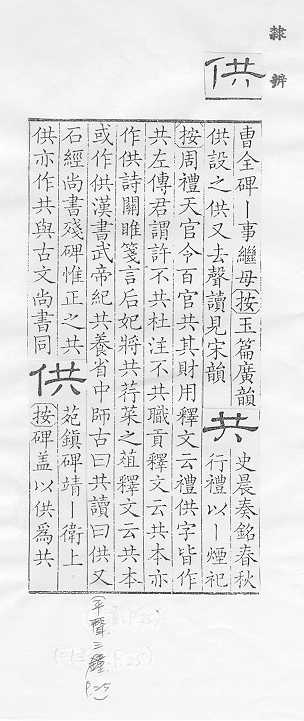 隸辨
供
曹全碑丨事繼母按玉篇廣韻
供設之供又去聲讀見宋韻
共
史晨奏銘春秋
行禮以丨煙祀
按周禮天官令百官共其財用釋文云禮供字皆作
共左傳君謂許不共杜注不共職貢釋文云共本亦
作供詩關雎箋言后妃將共荇菜之葅釋文云共本
或作供漢書武帝紀共養省中師古曰共讀曰供又
石經尚書殘碑惟正之共
供亦作共與古文尚書同
供
苑鎮碑靖丨衛上
按碑盖以供爲共
(平聲三鍾 P.25)